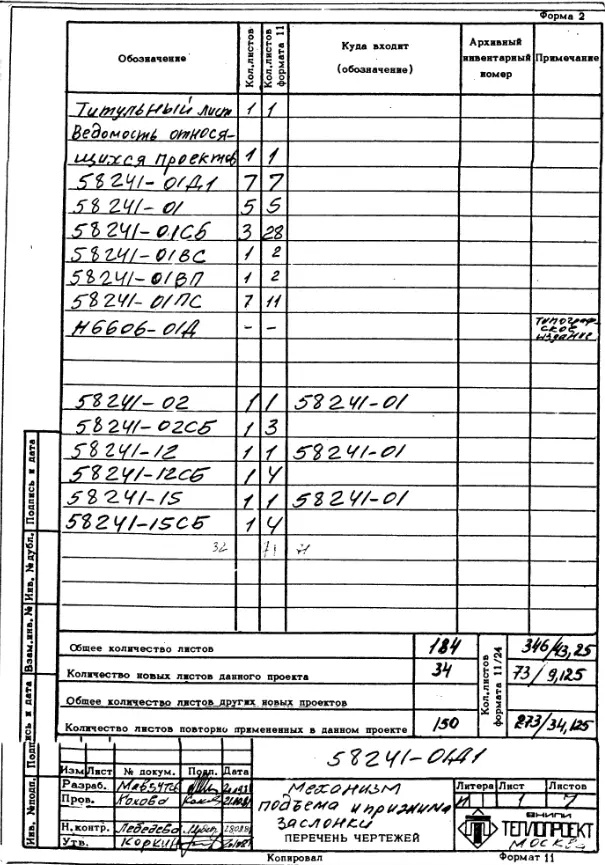 Форма 2
Обозначение
Кол.листов
Кол.листов формата 11
Куда входит (обозначение)
Архивный инвентарный номер
Примечание
Титульный лист 1 1
Ведомость относя-
щихся проектов 1 1
58241-01Д1 7 7
58241-01 5 5
58241-01СБ 3 28
58241-01ВС 1 2
58241-01ВП 1 2
58241-01ПС 7 11
Н6606-01Д - - типограф-
ское
издание
58241-02 1 1 58241-01
58241-02СБ 1 3
58241-12 1 1 58241-01
58241-12СБ 1 4
58241-15 1 1 58241-01
58241-15СБ 1 4
32 71
Общее количество листов 184
Количество новых листов данного проекта 34
Общее количество листов других новых проектов
Количество листов повторно примененных в данном проекте 150
Кол.листов формата 11/24
346/43,25
73/9,125
273/34,125
58241-01Д1
Изм Лист № докум. Подп. Дата
Разраб.
Пров. Кохова
Н.контр. Лебедева
Утв. Коркин
Механизм
подъема и прижима
заслонки
ПЕРЕЧЕНЬ ЧЕРТЕЖЕЙ
Литера Лист Листов
И 1 7
ВНИПИ
ТЕПЛОПРОЕКТ
МОСКВА
Подпись и дата
Инв. № дубл.
Взам.инв. №
Подпись и дата
Инв. №подл.
Копировал
Формат 11